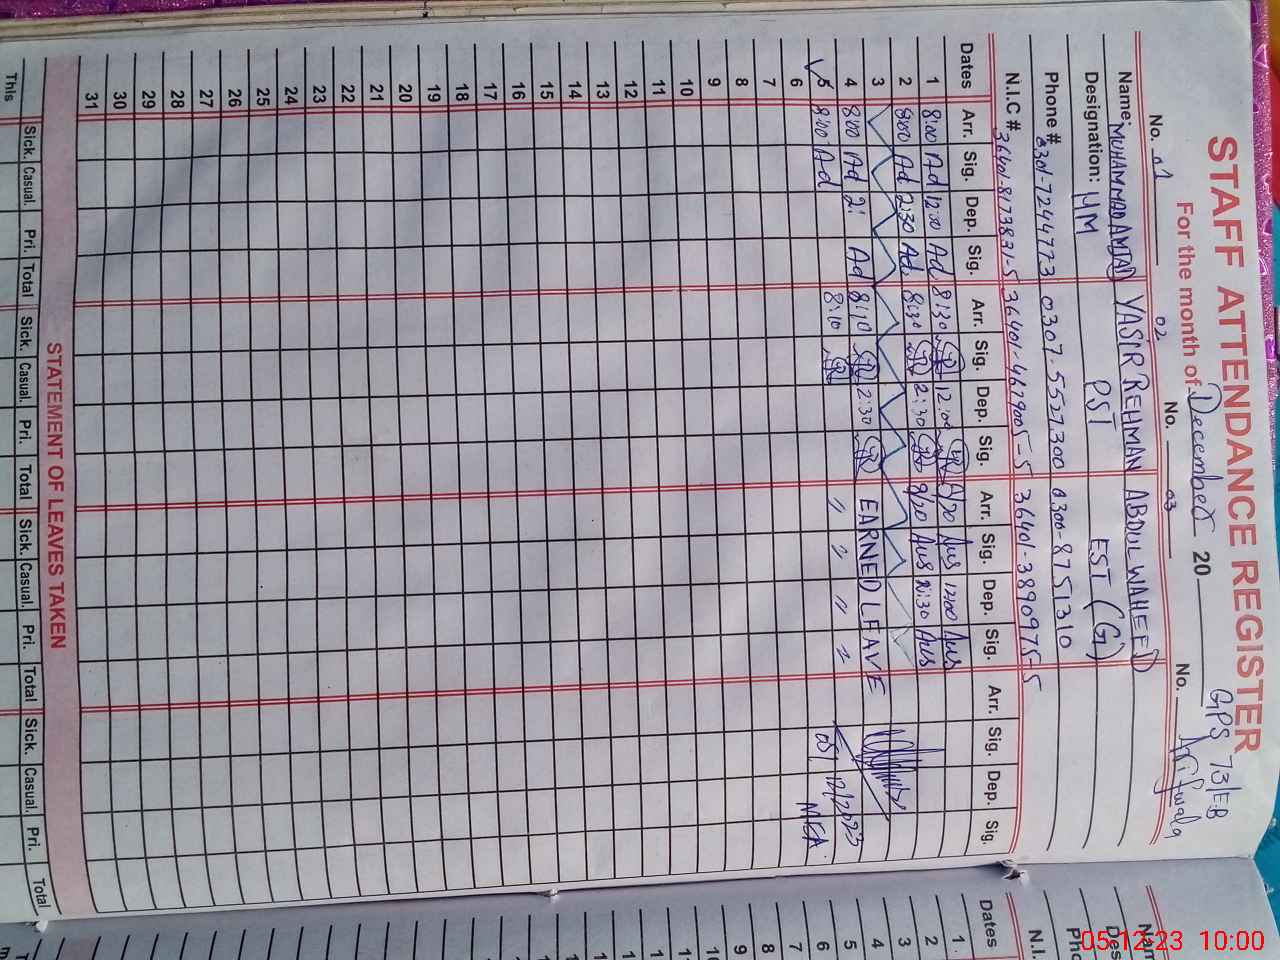 STAFF ATTENDANCE REGISTER
GPS 73/EB
Arifwala
For the month of December 20
No. 01
02
No. 03
No.
Name: MUHAMMAD AMJAD YASIR REHMAN ABDUL WAHEED
Designation: HM PST EST (G)
Phone # 0301-7244773 0307-5527300 0300-8751310
N.I.C # 36401-8173831-5 36401-4679005-5 36401-3890975-5
Dates Arr. Sig. Dep. Sig. Arr. Sig. Dep. Sig. Arr. Sig. Dep. Sig. Arr. Sig. Dep. Sig.
1 8:00 Ad 12:00 Ad 8:30 12:00 Aus 12:00 Aus
2 8:00 Ad 2:30 Ad 8:30 2:30 Aus Aus
3
4 8:00 Ad 2: Ad 8:10 2:30 EARNED LEAVE
5 8:00 Ad 8:10 〃 〃 〃 〃
05/12/2023
MEA
6
7
8
9
10
11
12
13
14
15
16
17
18
19
20
21
22
23
24
25
26
27
28
29
30
31
STATEMENT OF LEAVES TAKEN
Sick. Casual. Pri. Total Sick. Casual. Pri. Total Sick. Casual. Pri. Total Sick. Casual. Pri. Total
This
Nam
Des
Pho
N.I.
Dates
1
2
3
4
5
6
7
8
9
10
11
12
13
14
15
05-12-23 10:00